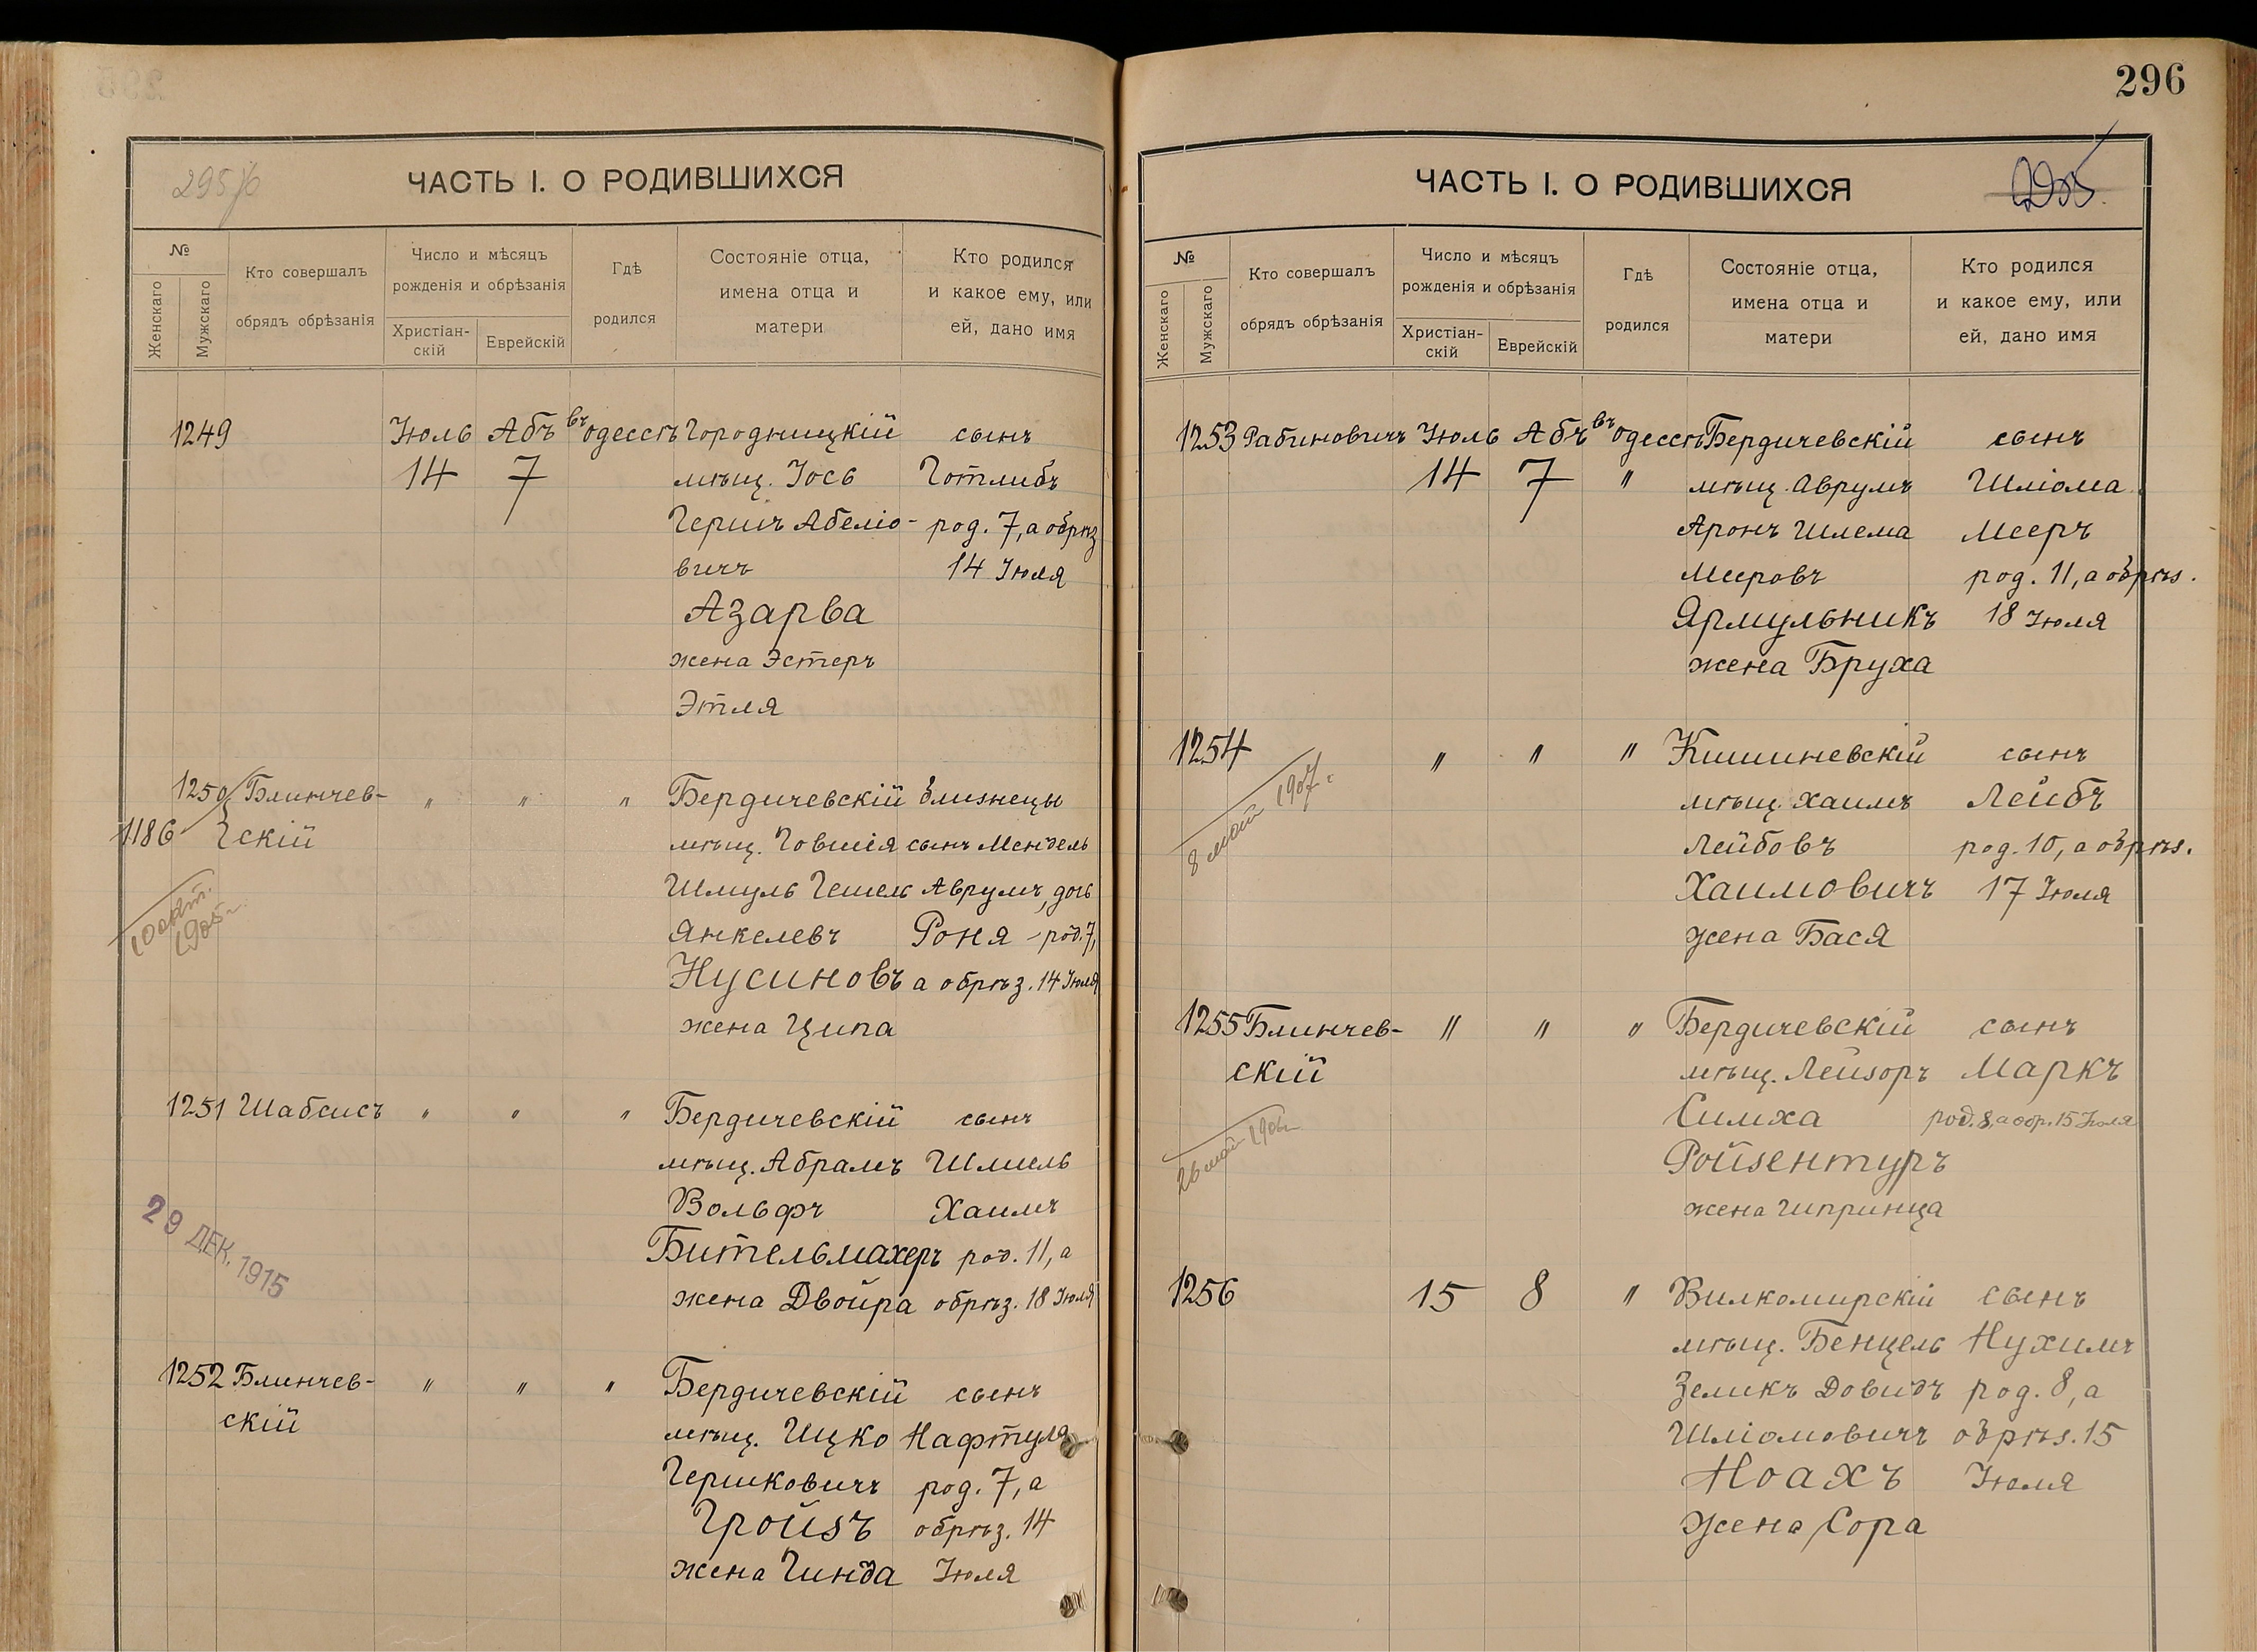 296
ЧАСТЬ I. О РОДИВШИХСЯ
№
Женскаго
Мужскаго
Кто совершалъ
обрядъ обрѣзанія
Число и мѣсяцъ
рожденія и обрѣзанія
Христіан-
скій
Еврейскій
Гдѣ
родился
Состояніе отца,
имена отца и
матери
Кто родился
и какое ему, или
ей, дано имя
1249 Іюль Абъ въ Одессѣ Городницкій сынъ
14 7 мѣщ. Іось Готлибъ
Гершъ Абеліо- род. 7, а обрѣз
вичъ 14 Іюля
Азарва
жена Эстеръ
Этля
1250 Блинчев- " " " Бердичевскій близнецы
1186 скій мѣщ. Говшія сынъ Мендель
Шмуль Гешель Аврумъ, дочь
Янкелевъ Роня - род. 7,
Нусиновъ а обрѣз. 14 Іюля
жена Ципа
10 окт.
1905 г.
1251 Шабсисъ " " " Бердичевскій сынъ
мѣщ. Абрамъ Шмиель
Вольфъ Хаимъ
Бительмахеръ род. 11, а
жена Двойра обрѣз. 18 Іюля
29 ДЕК. 1915
1252 Блинчев- " " " Бердичевскій сынъ
скій мѣщ. Ицко Нафтула
Гершковичъ род. 7, а
Гройзъ обрѣз. 14
жена Гинда Іюля
ЧАСТЬ I. О РОДИВШИХСЯ
№
Женскаго
Мужскаго
Кто совершалъ
обрядъ обрѣзанія
Число и мѣсяцъ
рожденія и обрѣзанія
Христіан-
скій
Еврейскій
Гдѣ
родился
Состояніе отца,
имена отца и
матери
Кто родился
и какое ему, или
ей, дано имя
1253 Рабиновичъ Іюль Абъ въ Одессѣ Бердичевскій сынъ
14 7 " мѣщ. Аврумъ Шліома
Аронъ Шлема Мееръ
Мееровъ род. 11, а обрѣз.
Ярмульникъ 18 Іюля
жена Бруха
1254 " " " Кишиневскій сынъ
мѣщ. Хаимъ Лейбъ
Лейбовъ род. 10, а обрѣз.
Хаимовичъ 17 Іюля
жена Бася
8 май 1907 г.
1255 Блинчев- " " " Бердичевскій сынъ
скій мѣщ. Лейзоръ Маркъ
Симха род. 8, а обр. 15 Іюля
Ройзентуръ
жена Шпринца
26 май 1906 г.
1256 15 8 " Вилкомирскій сынъ
мѣщ. Бенцель Нухимъ
Зеликъ Довидъ род. 8, а
Шліомовичъ обрѣз. 15
Ноахъ Іюля
жена Сора